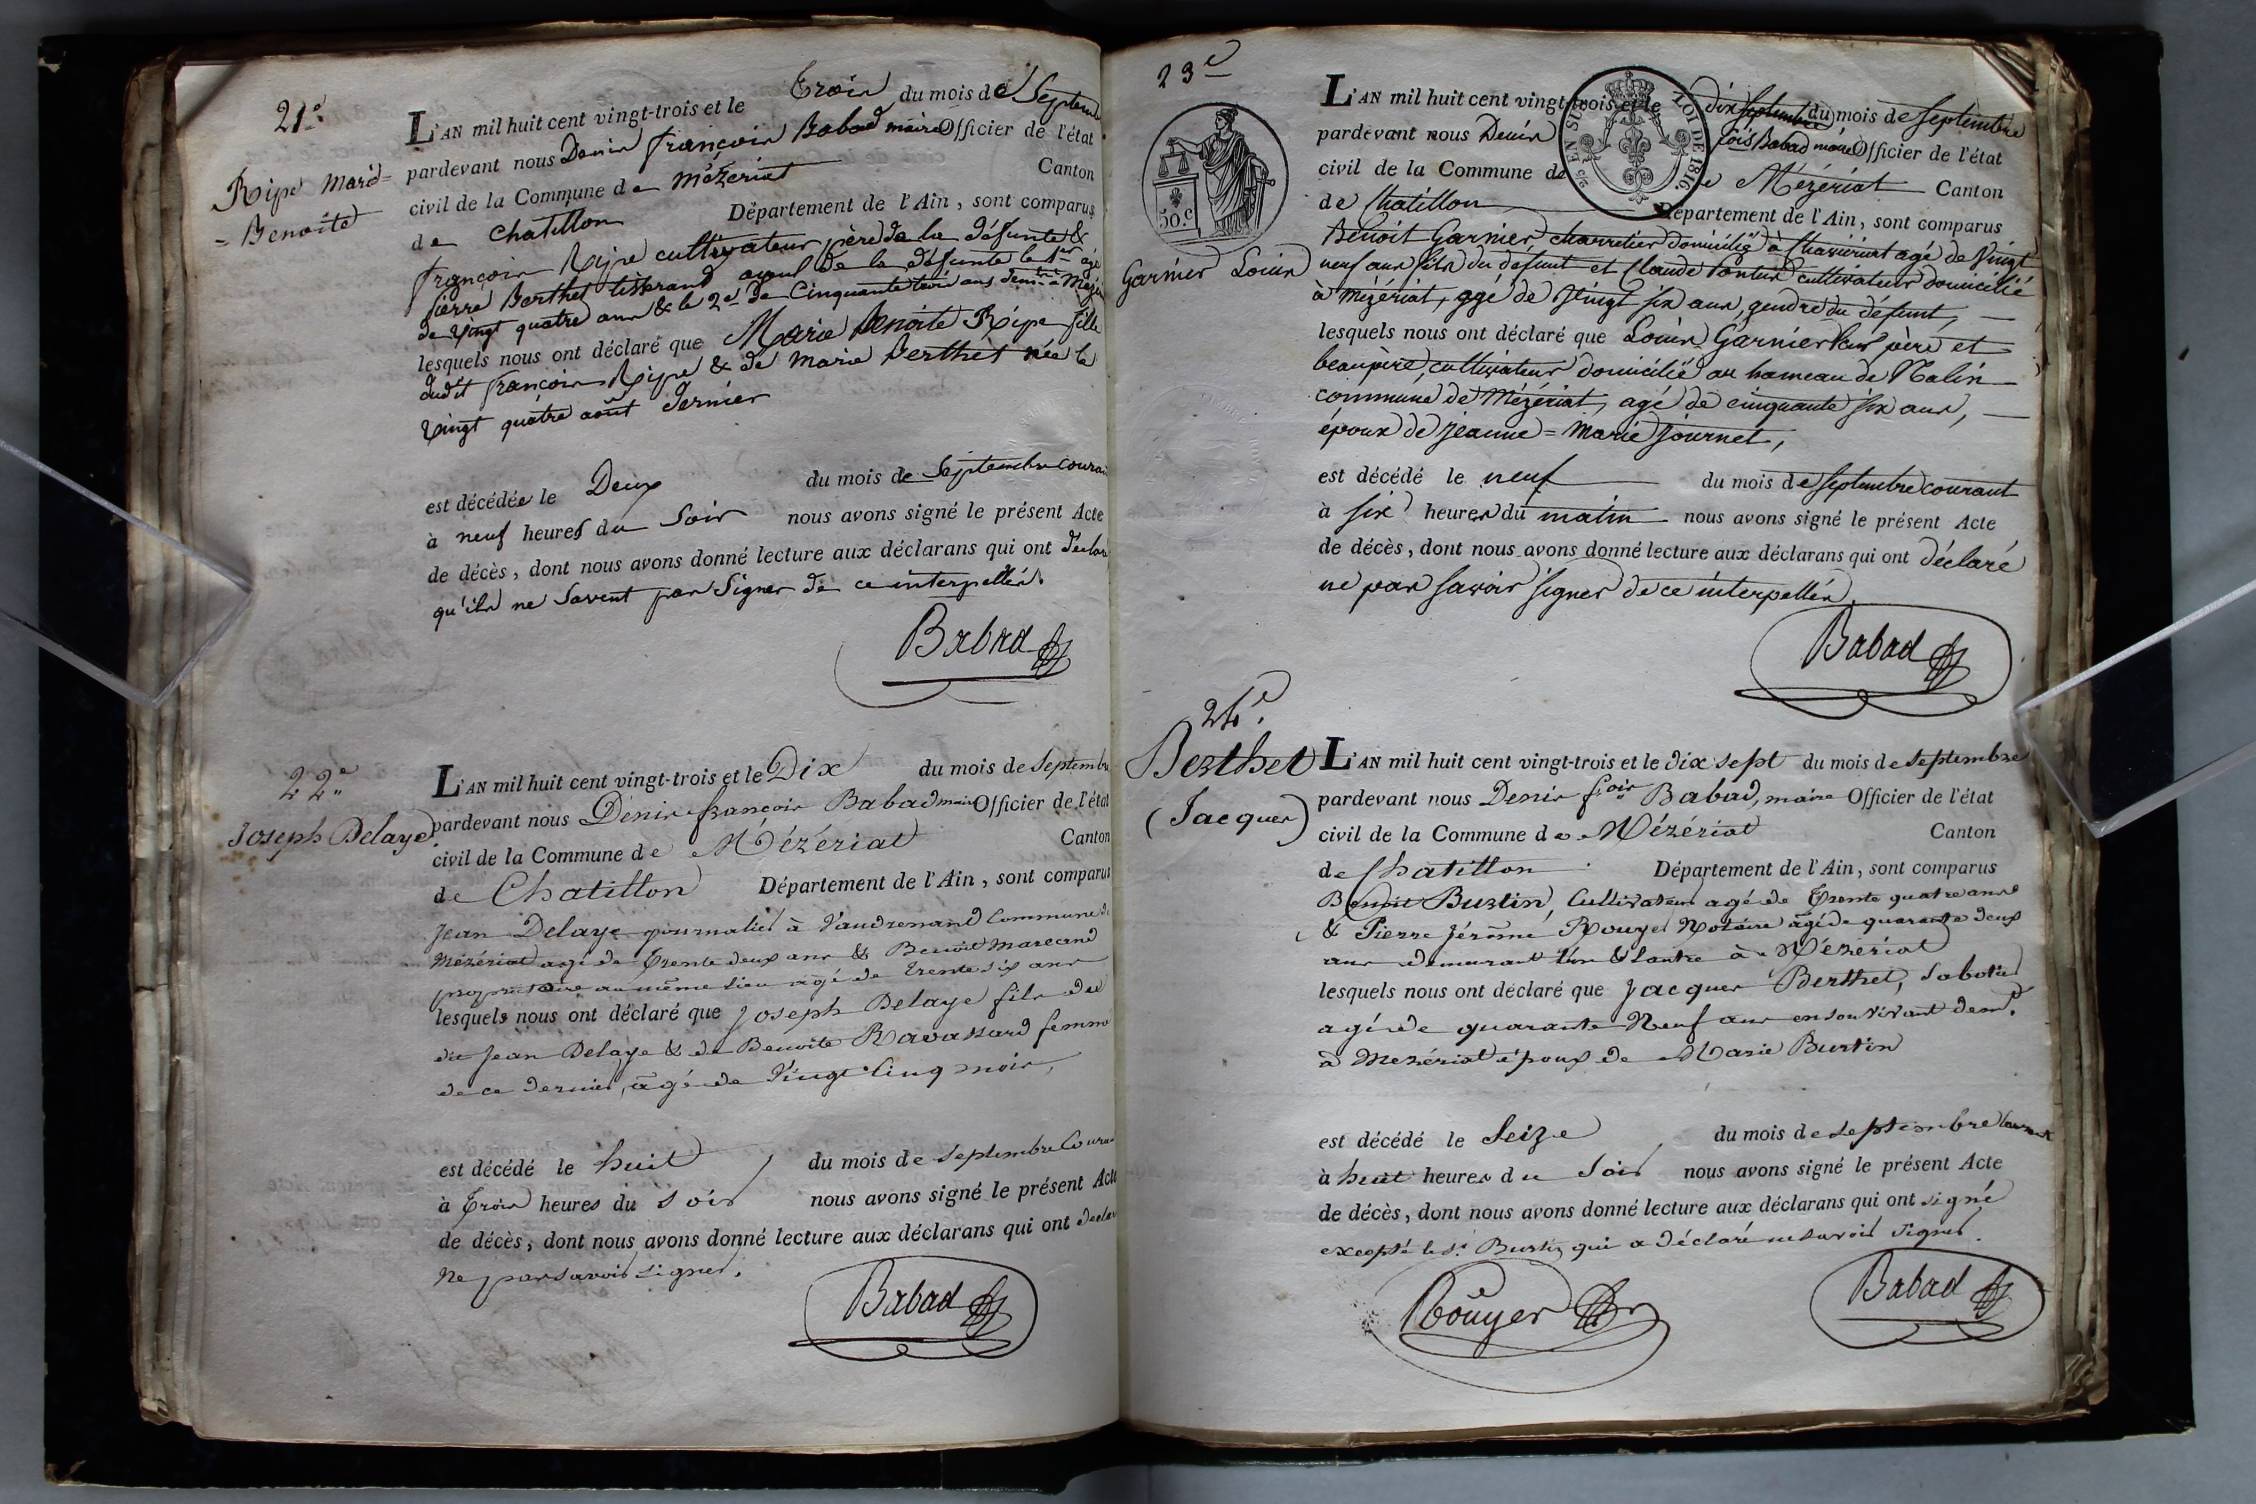 21e.
Ripe Marie=
=Benoite
L'AN mil huit cent vingt-trois et le Trois du mois de Septembre
pardevant nous Denis françois Babad maire Officier de l'état
civil de la Commune de Mézériat Canton
de Chatillon Département de l'Ain, sont comparus
françois Ripe cultivateur père de la défunte &
pierre Berthet tisserand ayeul de la défunte le 1er agé
de vingt quatre ans & le 2e de Cinquante trois ans à Mézériat
lesquels nous ont déclaré que Marie Benoite Ripe fille
dudit françois Ripe & de Marie Berthet née le
vingt quatre août dernier
est décédée le Deux du mois de Septembre courant
à neuf heures du Soir nous avons signé le présent Acte
de décès, dont nous avons donné lecture aux déclarans qui ont déclaré
qu'ils ne Savent pas Signer de ce interpellés.
Babad
22e.
Joseph Delaye
L'AN mil huit cent vingt-trois et le Dix du mois de Septembre
pardevant nous Denis françois Babad maire Officier de l'état
civil de la Commune de Mézériat Canton
de Chatillon Département de l'Ain, sont comparus
Jean Delaye journalier à Vaudrenand Commune de
Mézériat agé de Trente deux ans & Benoit Marecand
propriétaire au même lieu agé de trente six ans
lesquels nous ont déclaré que Joseph Delaye fils du
dit Jean Delaye & de Benoite Ravassard femme
de ce dernier, agé de Vingt Cinq mois,
est décédé le huit du mois de Septembre Courant
à Trois heures du soir nous avons signé le présent Acte
de décès, dont nous avons donné lecture aux déclarans qui ont declaré
Ne pas savoir signer.
Babad
23e
50.c
Garnier Louis
EN SUS
LOI DE 1816.
L'AN mil huit cent vingt-trois et le dix septembre du mois de septembre
pardevant nous Denis fçois Babad maire Officier de l'état
civil de la Commune de Mézériat Canton
de Chatillon Département de l'Ain, sont comparus
Benoit Garnier, charretier domicilié à Chaveiriat agé de Vingt
neuf ans fils du défunt et Claude Pontus cultivateur domicilié
à Mézériat, agé de Vingt six ans, gendre du défunt,
lesquels nous ont déclaré que Louis Garnier leur père et
beaupère, cultivateur domicilié au hameau de Malin
commune de Mézériat, agé de cinquante six ans,
époux de jeanne=Marie journet,
est décédé le neuf du mois de septembre courant
à six heures du matin nous avons signé le présent Acte
de décès, dont nous avons donné lecture aux déclarans qui ont déclaré
ne pas savoir signer de ce interpellés.
Babad
24e.
Berthet
(Jacques)
L'AN mil huit cent vingt-trois et le dix sept du mois de septembre
pardevant nous Denis fçois Babad, maire Officier de l'état
civil de la Commune de Mézériat Canton
de Chatillon Département de l'Ain, sont comparus
Benoit Burtin, Cultivateur agé de Trente quatre ans
& Pierre Jérôme Rouyer Notaire âgé de quarante deux
ans demeurant l'un & l'autre à Mézériat
lesquels nous ont déclaré que Jacques Berthet, Sabotier
agé de quarante Neuf ans en son vivant demt.
à Mezériat époux de Marie Burtin
est décédé le Seize du mois de septembre Courant
à huit heures du Soir nous avons signé le présent Acte
de décès, dont nous avons donné lecture aux déclarans qui ont signé
excepté le Sr. Burtin qui a déclaré ne savoir signer.
Rouyer
Babad